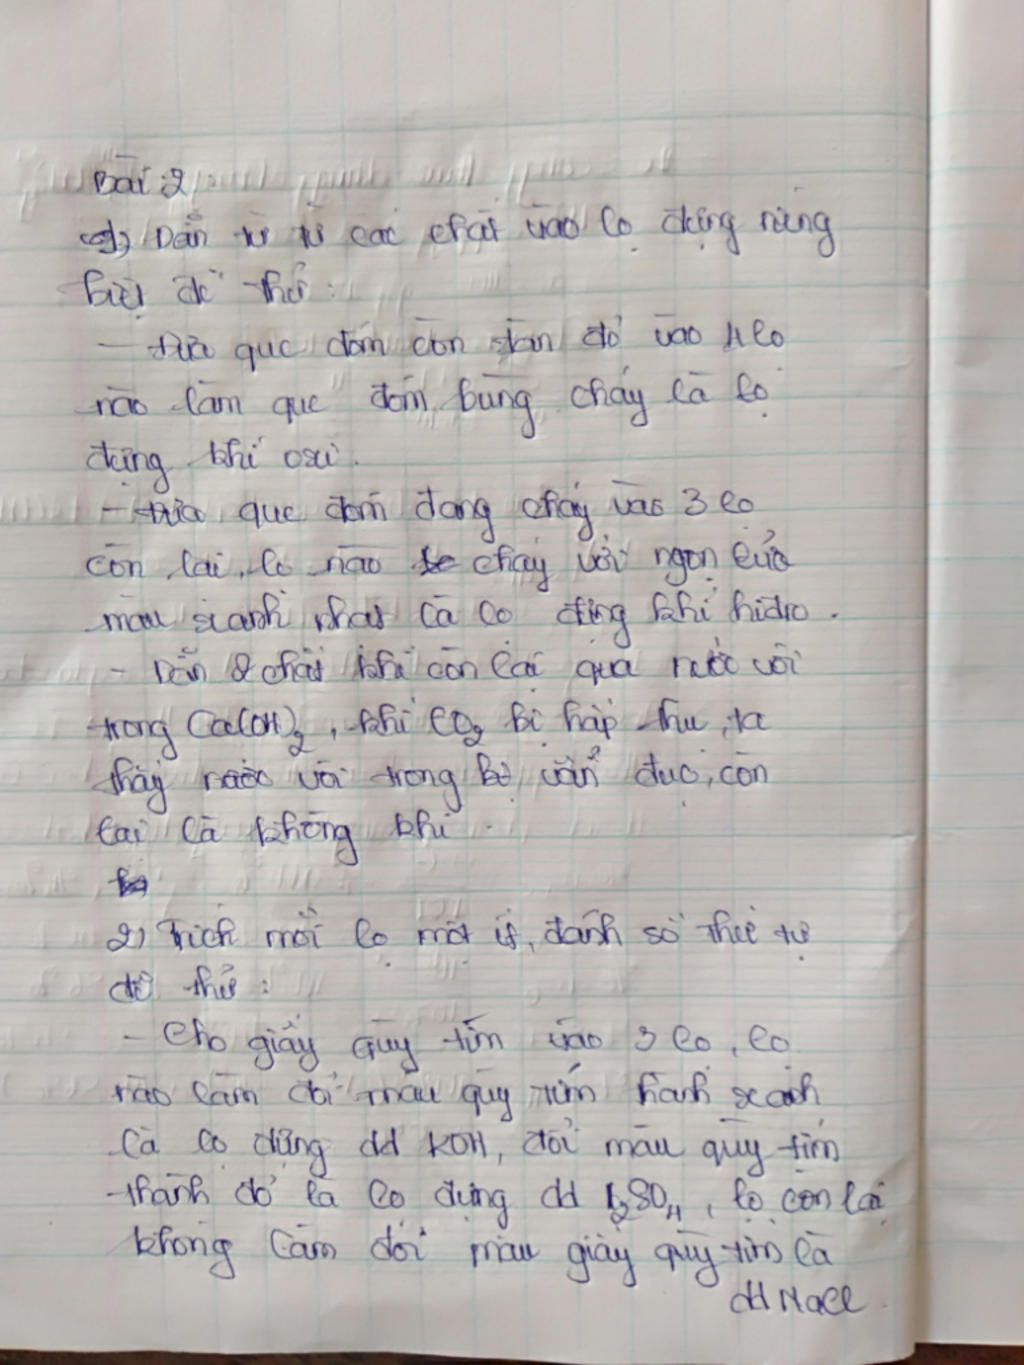 Bài 2:
1) Dẫn từ từ các chất vào lọ đựng riêng
biệt để thử:
- Đưa que đóm còn tàn đỏ vào 4 lọ
nào làm que đóm bùng cháy là lọ
đựng khí oxi.
- Đưa que đóm đang cháy vào 3 lọ
còn lại, lọ nào cháy với ngọn lửa
màu xanh nhạt là lọ đựng khí hiđro.
- Dẫn 2 chất khí còn lại qua nước vôi
trong Ca(OH)2, khí CO2 bị hấp thụ, ta
thấy nước vôi trong bị vẩn đục, còn
lại là không khí.
2) Trích mỗi lọ một ít, đánh số thứ tự
để thử:
- Cho giấy quỳ tím vào 3 lọ, lọ
nào làm đổi màu quỳ tím thành xanh
là lọ đựng dd KOH, đổi màu quỳ tím
thành đỏ là lọ đựng dd H2SO4, lọ còn lại
không làm đổi màu giấy quỳ tím là
dd NaCl.